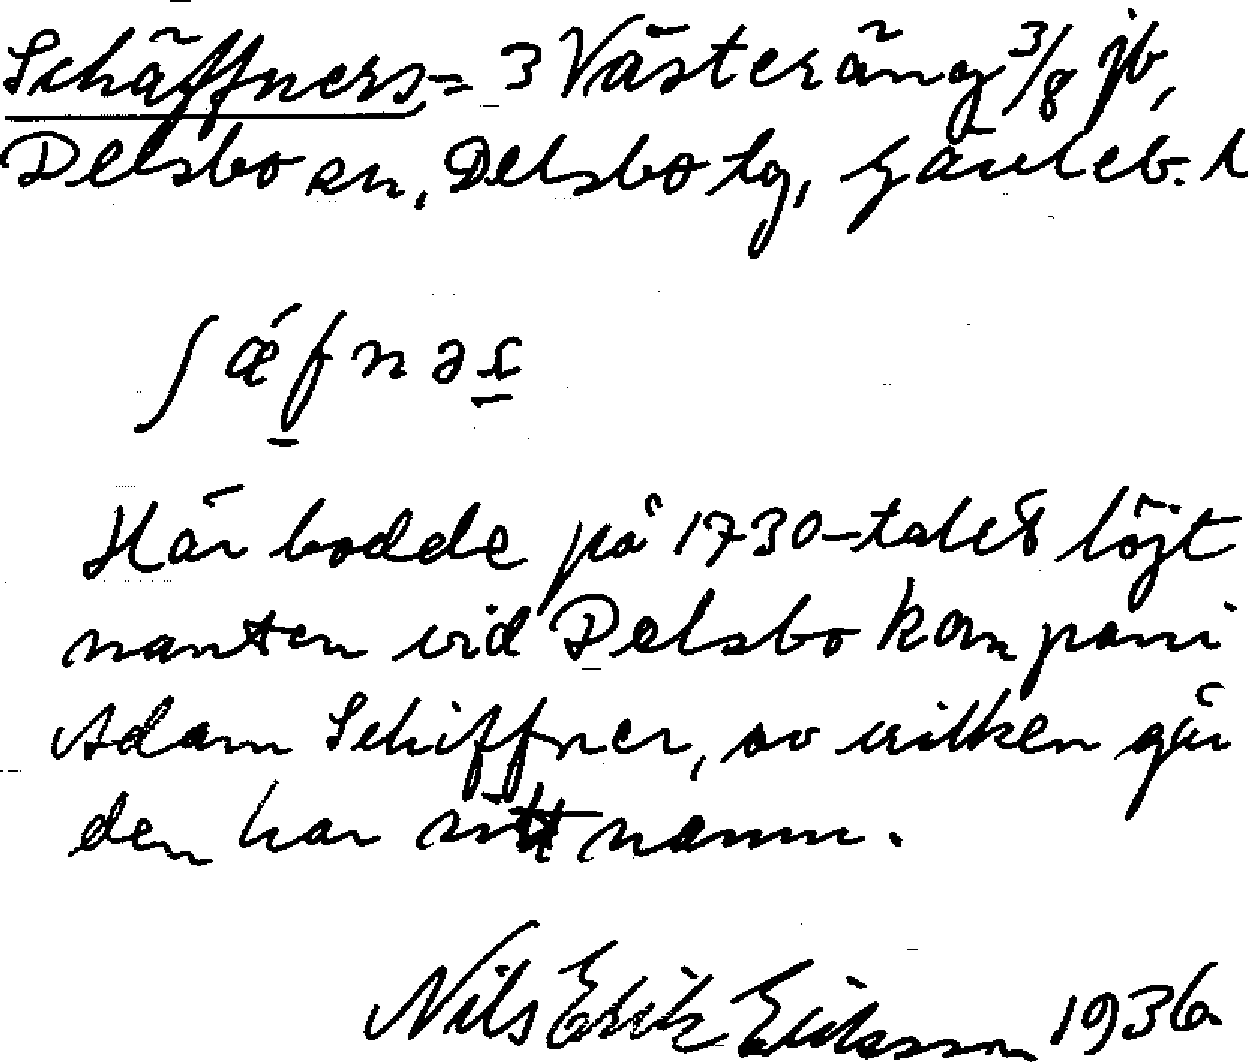 Schäffners = 3 Västeräng 3/8 jb,
Delsbo sn, Delsbo tg, Gävleb. l
ʃǽfnəs
Här bodde på 1730-talet löjt
nanten vid Delsbo kompani
Adam Schiffner, av vilken går
den har sitt namn.
Nils Erik Eriksson 1936